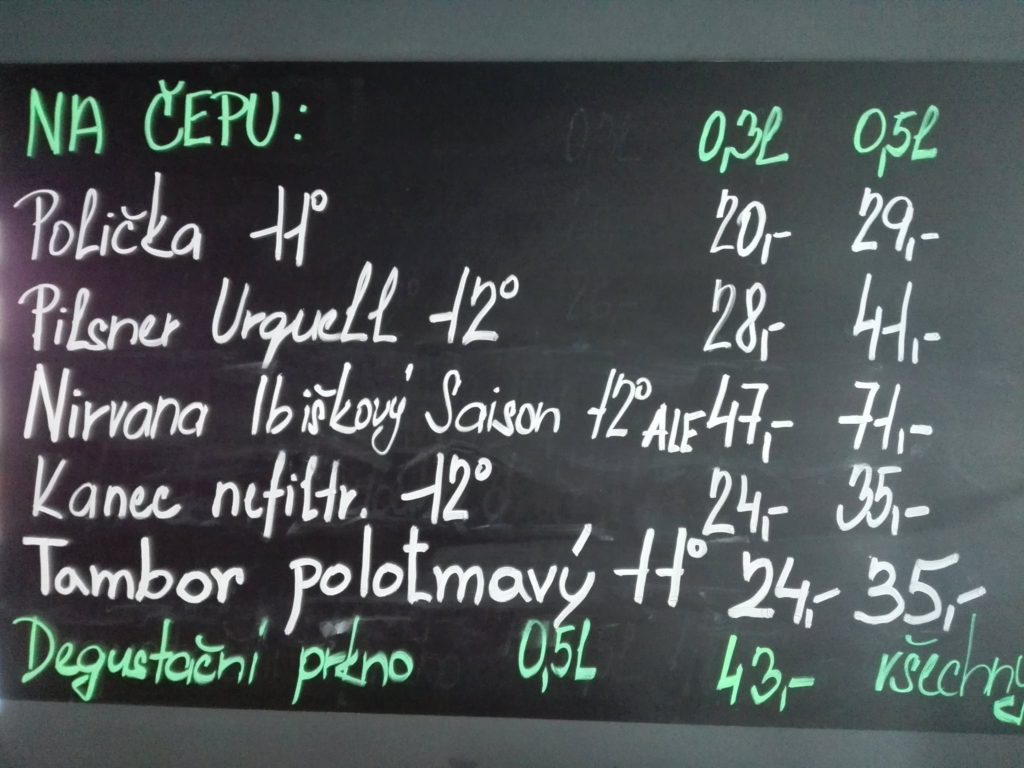 NA ČEPU: 0,3L 0,5L
Polička 11° 20,- 29,-
Pilsner Urquell 12° 28,- 41,-
Nirvana Ibiškový Saison 12° ALE 47,- 71,-
Kanec nefiltr. 12° 24,- 35,-
Tambor polotmavý 11° 24,- 35,-
Degustační prkno 0,5L 43,- všechny